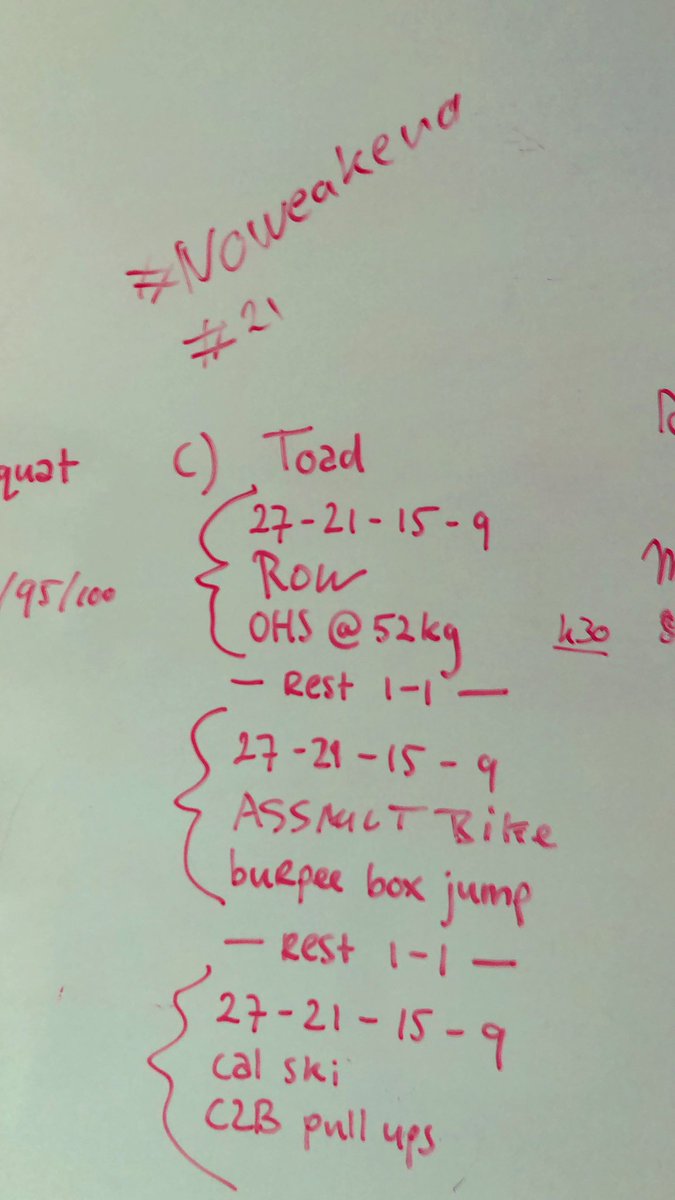 #Noweakend
#21
quat
/95/100
C) Toad
27-21-15-9
Row
OHS @ 52kg
- Rest 1-1 -
27-21-15-9
ASSAULT Bike
buRpee box jump
- Rest 1-1 -
27-21-15-9
Cal ski
C2B pull ups